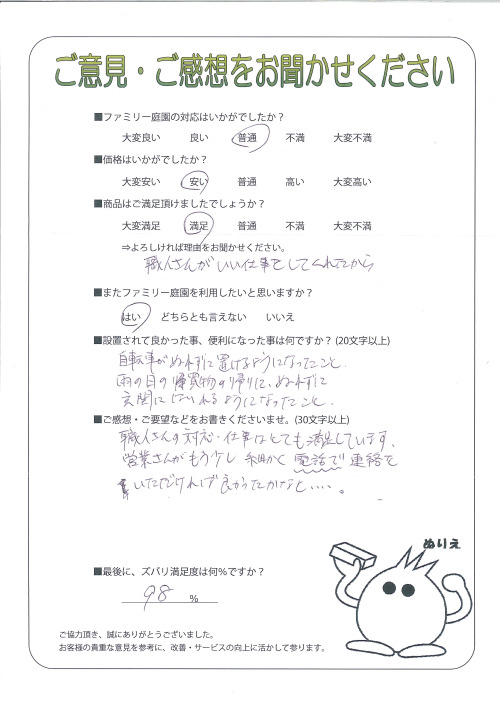 ご意見・ご感想をお聞かせください
■ファミリー庭園の対応はいかがでしたか？
大変良い 良い 普通 不満 大変不満
■価格はいかがでしたか？
大変安い 安い 普通 高い 大変高い
■商品はご満足頂けましたでしょうか？
大変満足 満足 普通 不満 大変不満
⇒よろしければ理由をお聞かせください。
職人さんがいい仕事をしてくれたから
■またファミリー庭園を利用したいと思いますか？
はい どちらとも言えない いいえ
■設置されて良かった事、便利になった事は何ですか？(20文字以上)
自転車がぬれずに置けるようになったこと。
雨の日の買物の帰りに、ぬれずに
玄関にはいれるようになったこと。
■ご感想・ご要望などをお書きくださいませ。(30文字以上)
職人さんの対応・仕事はとても満足しています。
営業さんがもう少し細かく電話で連絡を
いただければ良かったかなと・・・・。
ぬりえ
■最後に、ズバリ満足度は何%ですか？
98 %
ご協力頂き、誠にありがとうございました。
お客様の貴重な意見を参考に、改善・サービスの向上に活かして参ります。